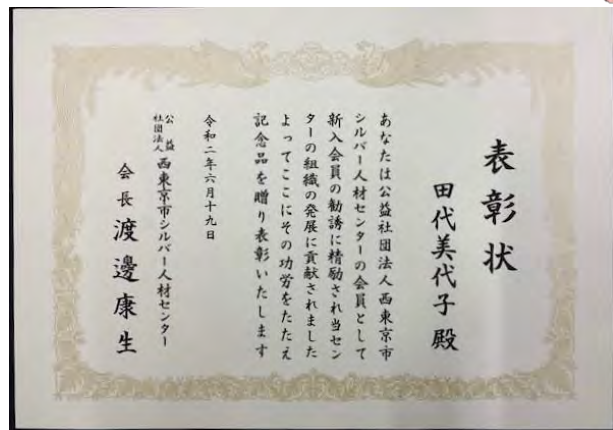 表彰状
田代美代子殿
あなたは公益社団法人西東京市
シルバー人材センターの会員として
新入会員の勧誘に精励され当セン
ターの組織の発展に貢献されました
よってここにその功労をたたえ
記念品を贈り表彰いたします
令和二年六月十九日
公益社団法人 西東京市シルバー人材センター
会長 渡邊康生